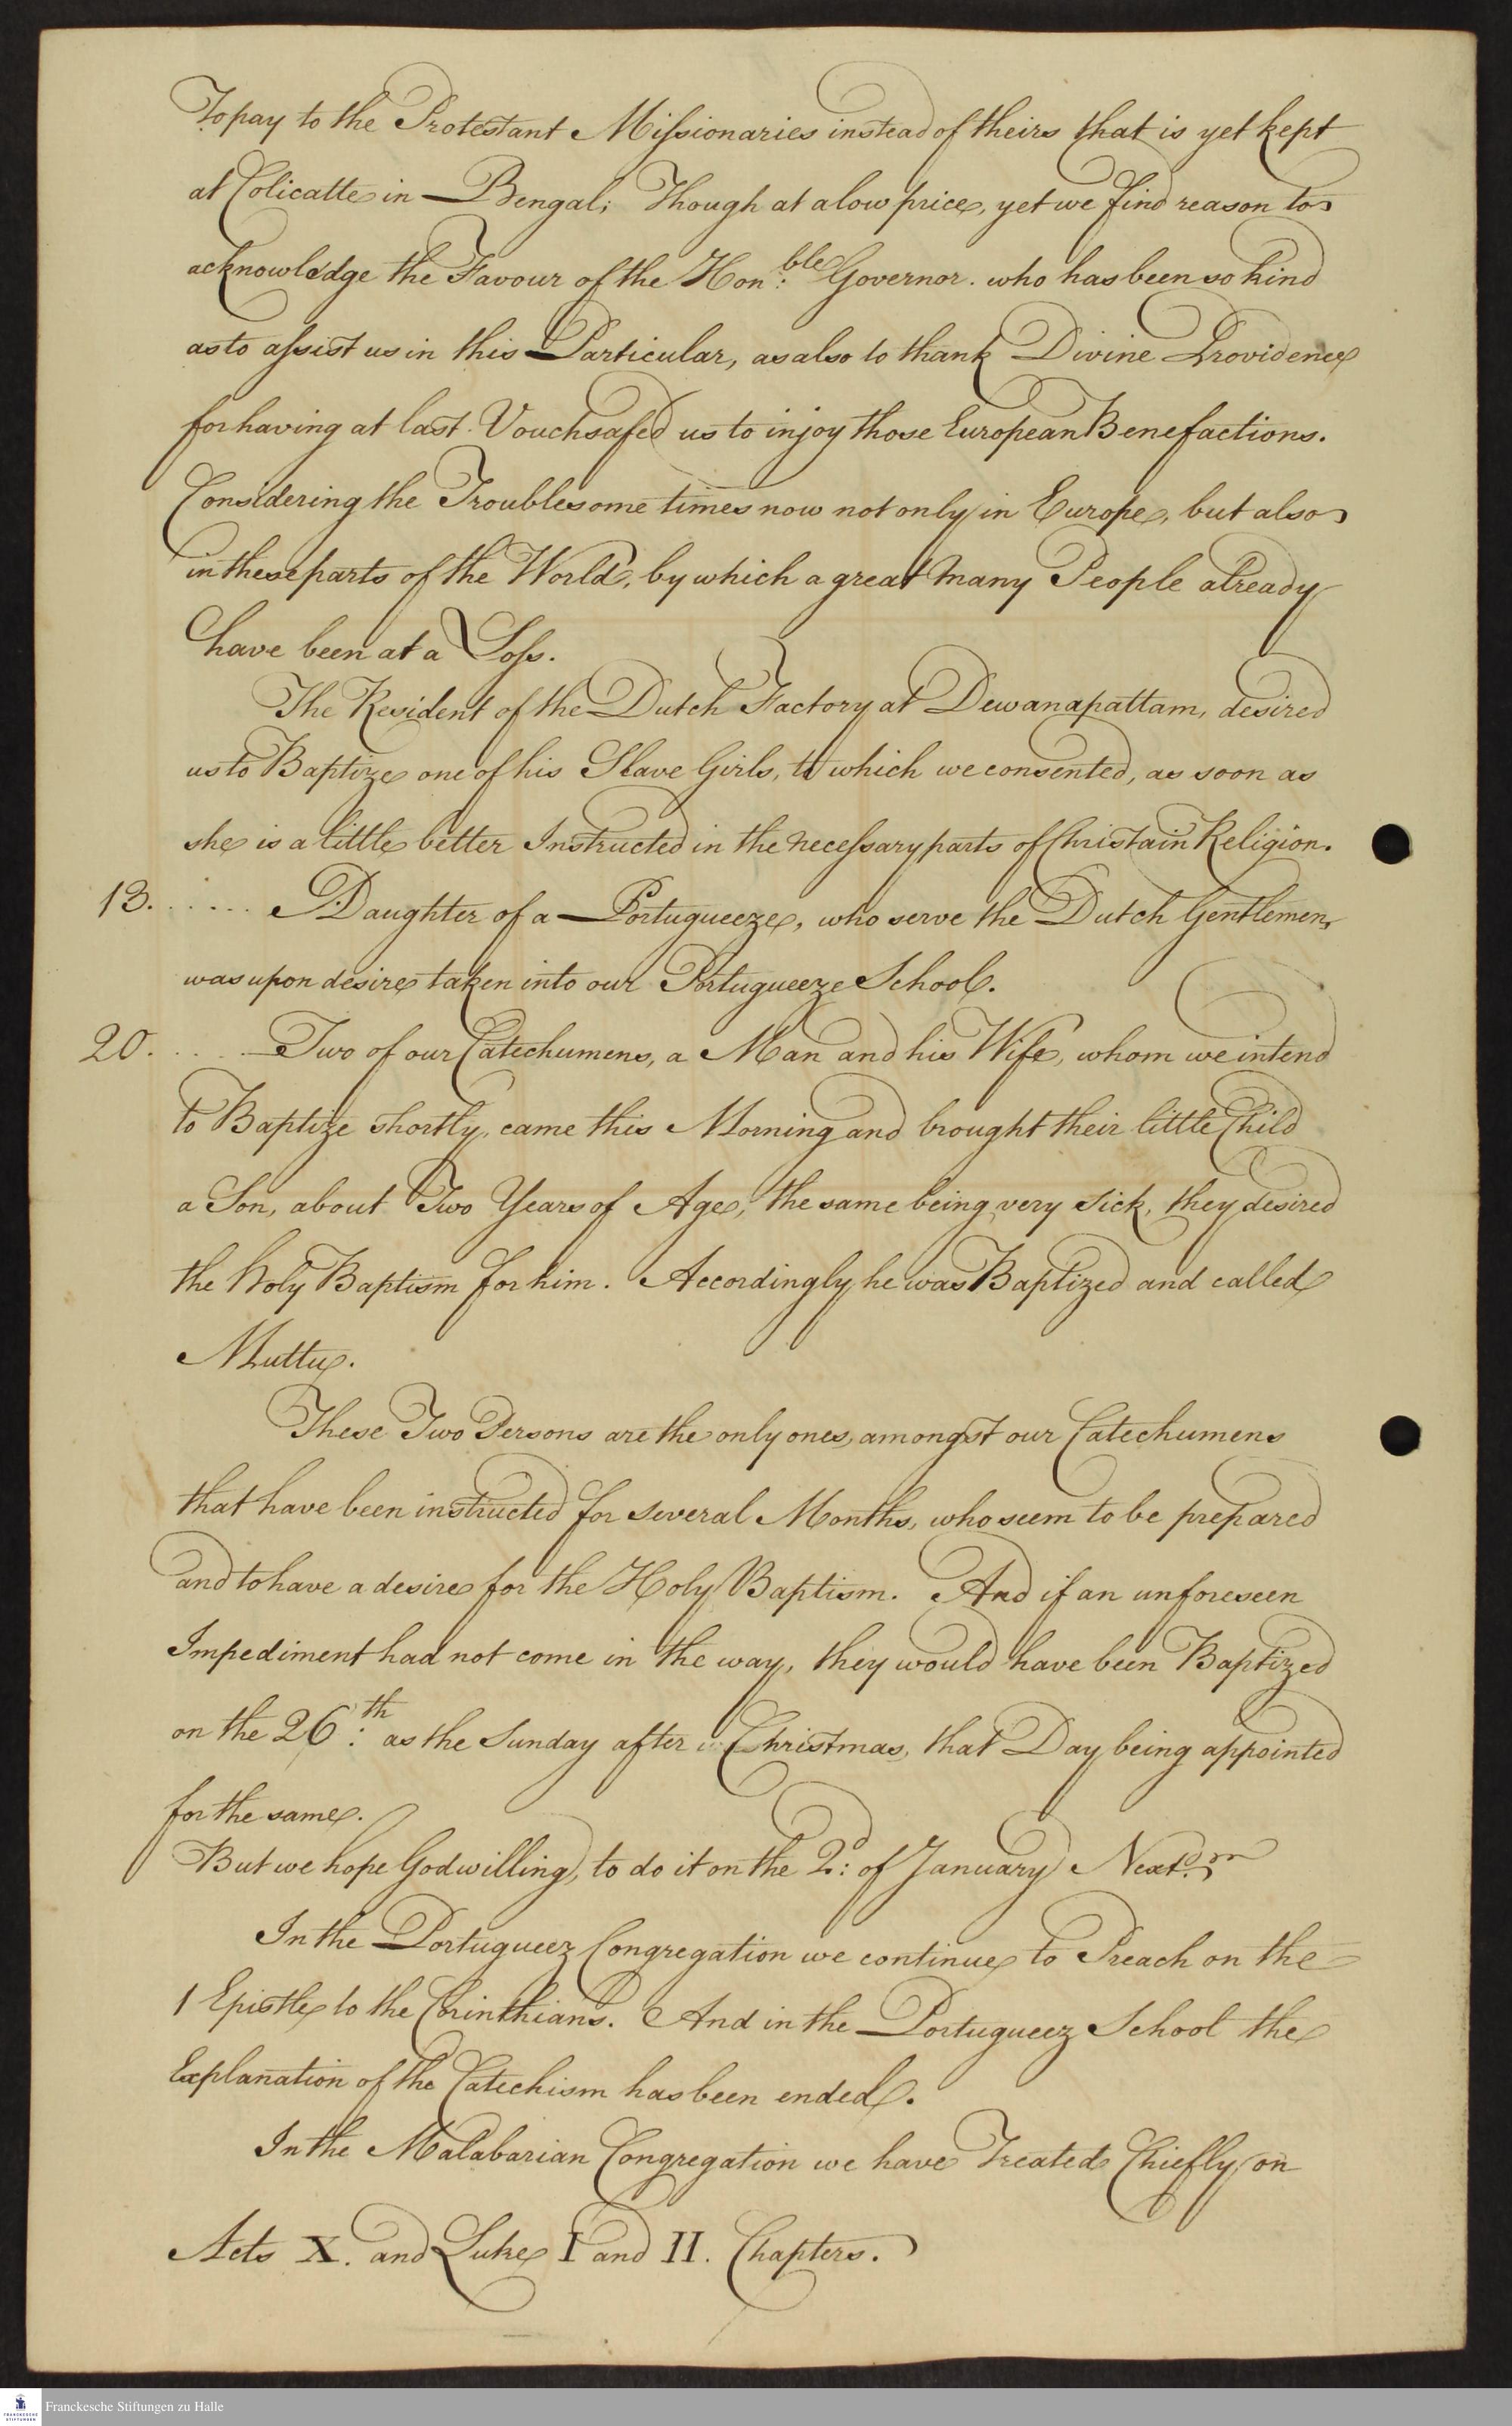 To pay to the Protestant Missionaries instead of theirs that is yet kept
at Colicatte in Bengal; Though at a low price, yet we find reason to
acknowledge the Favour of the Hon:ble Governor. who has been so kind
as to assist us in this Particular, as also to thank Divine Providence
for having at last Vouchsafed us to injoy those European Benefactions.
Considering the Troublesome times now not only in Europe, but also
in these parts of the World, by which a great many People already
have been at a Loss.
The Resident of the Dutch Factory at Dewanapattam, desired
us to Baptize one of his Slave Girls, to which we consented, as soon as
she is a little better Instructed in the necessary parts of Christain Religion.
13. . . . . . A Daughter of a Portugueeze, who serve the Dutch Gentlemen,
was upon desire taken into our Portugueeze School.
20. . . . . Two of our Catechumens, a Man and his Wife, whom we intend
to Baptize shortly, came this Morning and brought their little Child
a Son, about Two Years of Age, the same being very sick, they desired
the holy Baptism for him. Accordingly he was Baptized and called
Muttu.
These Two Persons are the only ones, amongst our Catechumens
that have been instructed for several Months, who seem to be prepared
and to have a desire for the Holy Baptism. And if an unforeseen
Impediment had not come in the way, they would have been Baptized
on the 26:th as the Sunday after Christmas, that Day being appointed
for the same.
But we hope God willing, to do it on the 2:d of January Next.
In the Portugueez Congregation we continue to Preach on the
1 Epistle to the Corinthians. And in the Portugueez School the
Explanation of the Catechism has been ended.
In the Malabarian Congregation we have Treated Chiefly on
Acts X. and Luke I and II. Chapters.
Franckesche Stiftungen zu Halle